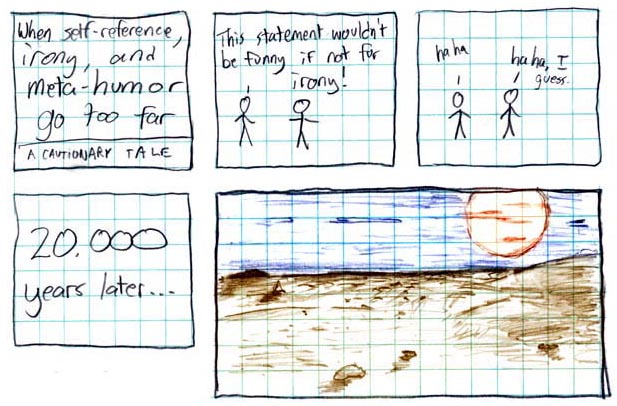 When self-reference,
irony, and
meta-humor
go too far
A CAUTIONARY TALE
This statement wouldn't
be funny if not for
irony!
ha ha
ha ha, I
guess.
20,000
years later...